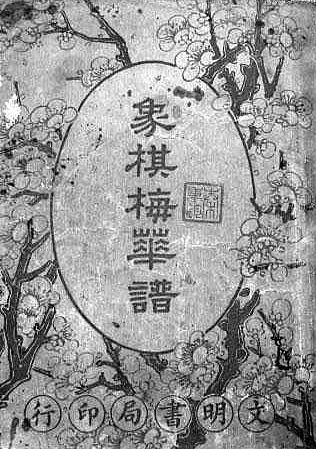 象棋梅華譜
文明書局印行